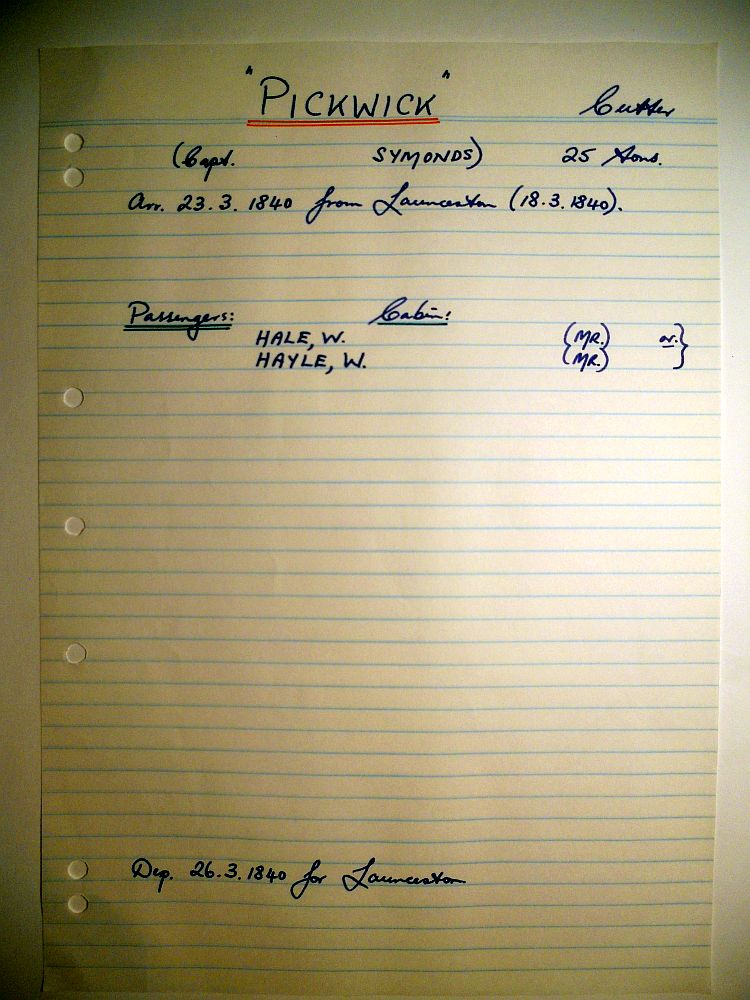 "PICKWICK" Cutter
(Capt. SYMONDS) 25 tons.
Arr. 23.3.1840 from Launceston (18.3.1840).
Passengers: Cabin:
HALE, W. {(MR.) or.}
HAYLE, W. {(MR.) }
Dep. 26.3.1840 for Launceston